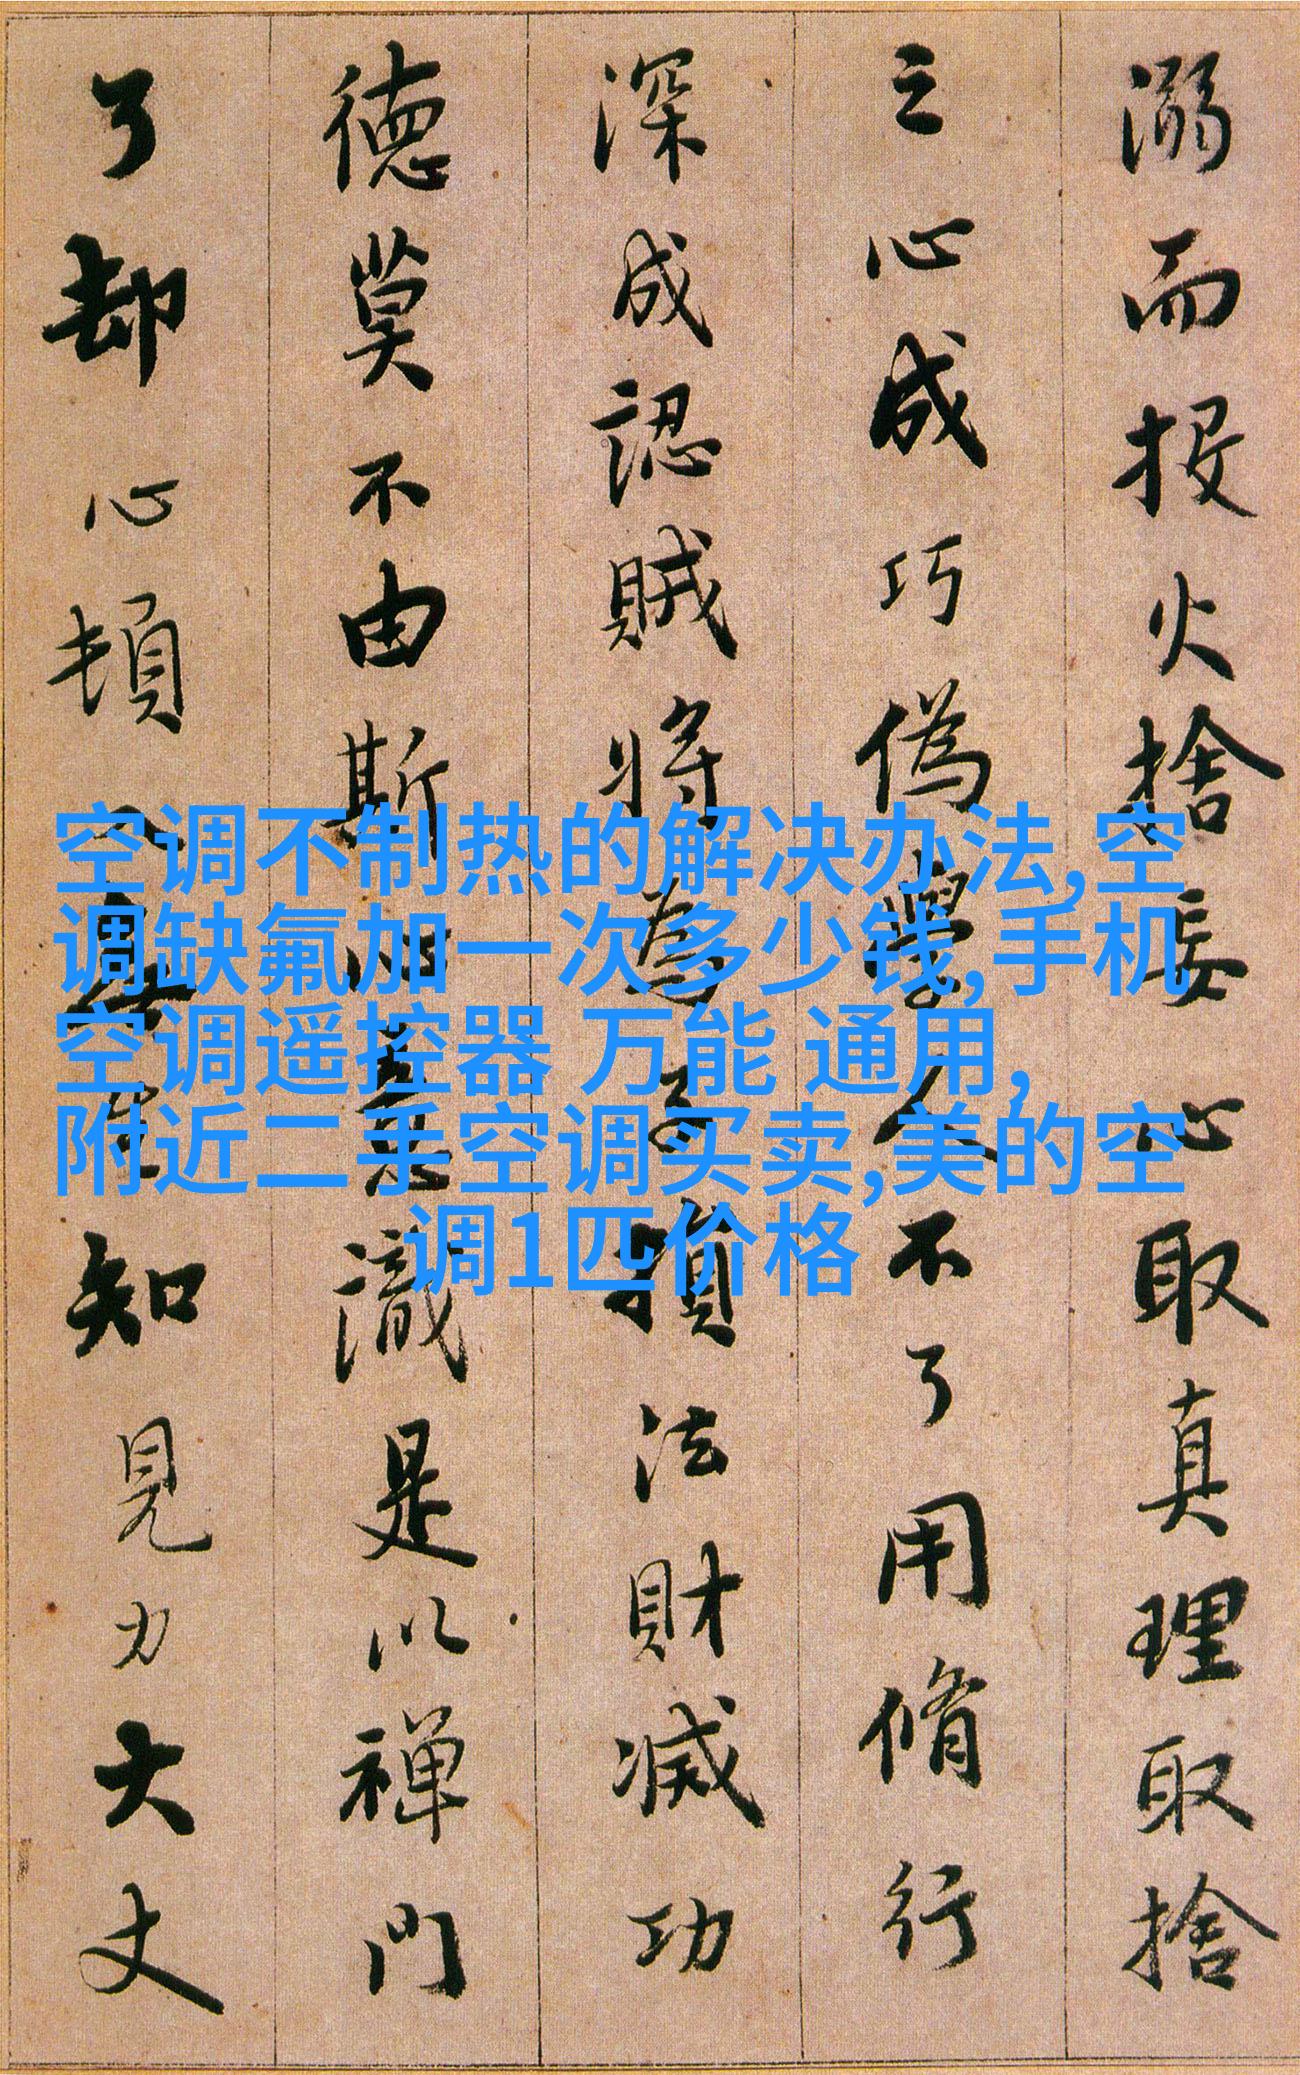 溺而投火捨妄心取真理取捨
之心成巧偽學人不了用脩行
深成認賊將為子損法財滅功
德莫不由斯心意識是以禪門
了却心頓入無生知見力大丈
空调不制热的解决办法,空
调缺氟加一次多少钱,手机
空调遥控器 万能 通用,
附近二手空调买卖,美的空
调1匹价格